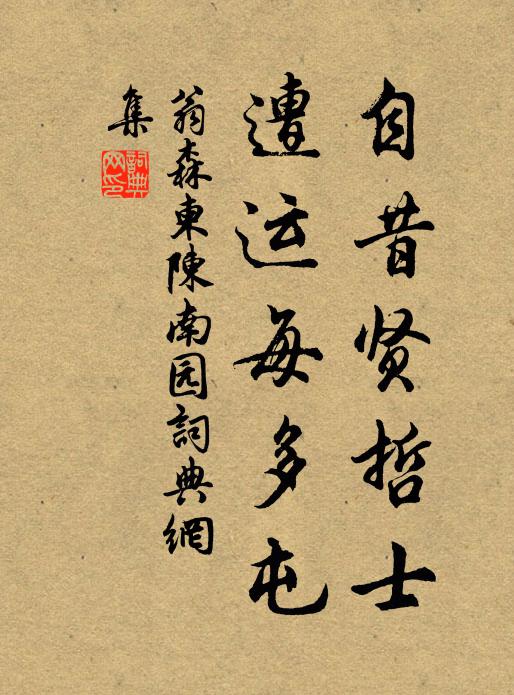 自昔贤哲士
遭运每多屯
翁森東陳南园詞典網
集
詞典
网印